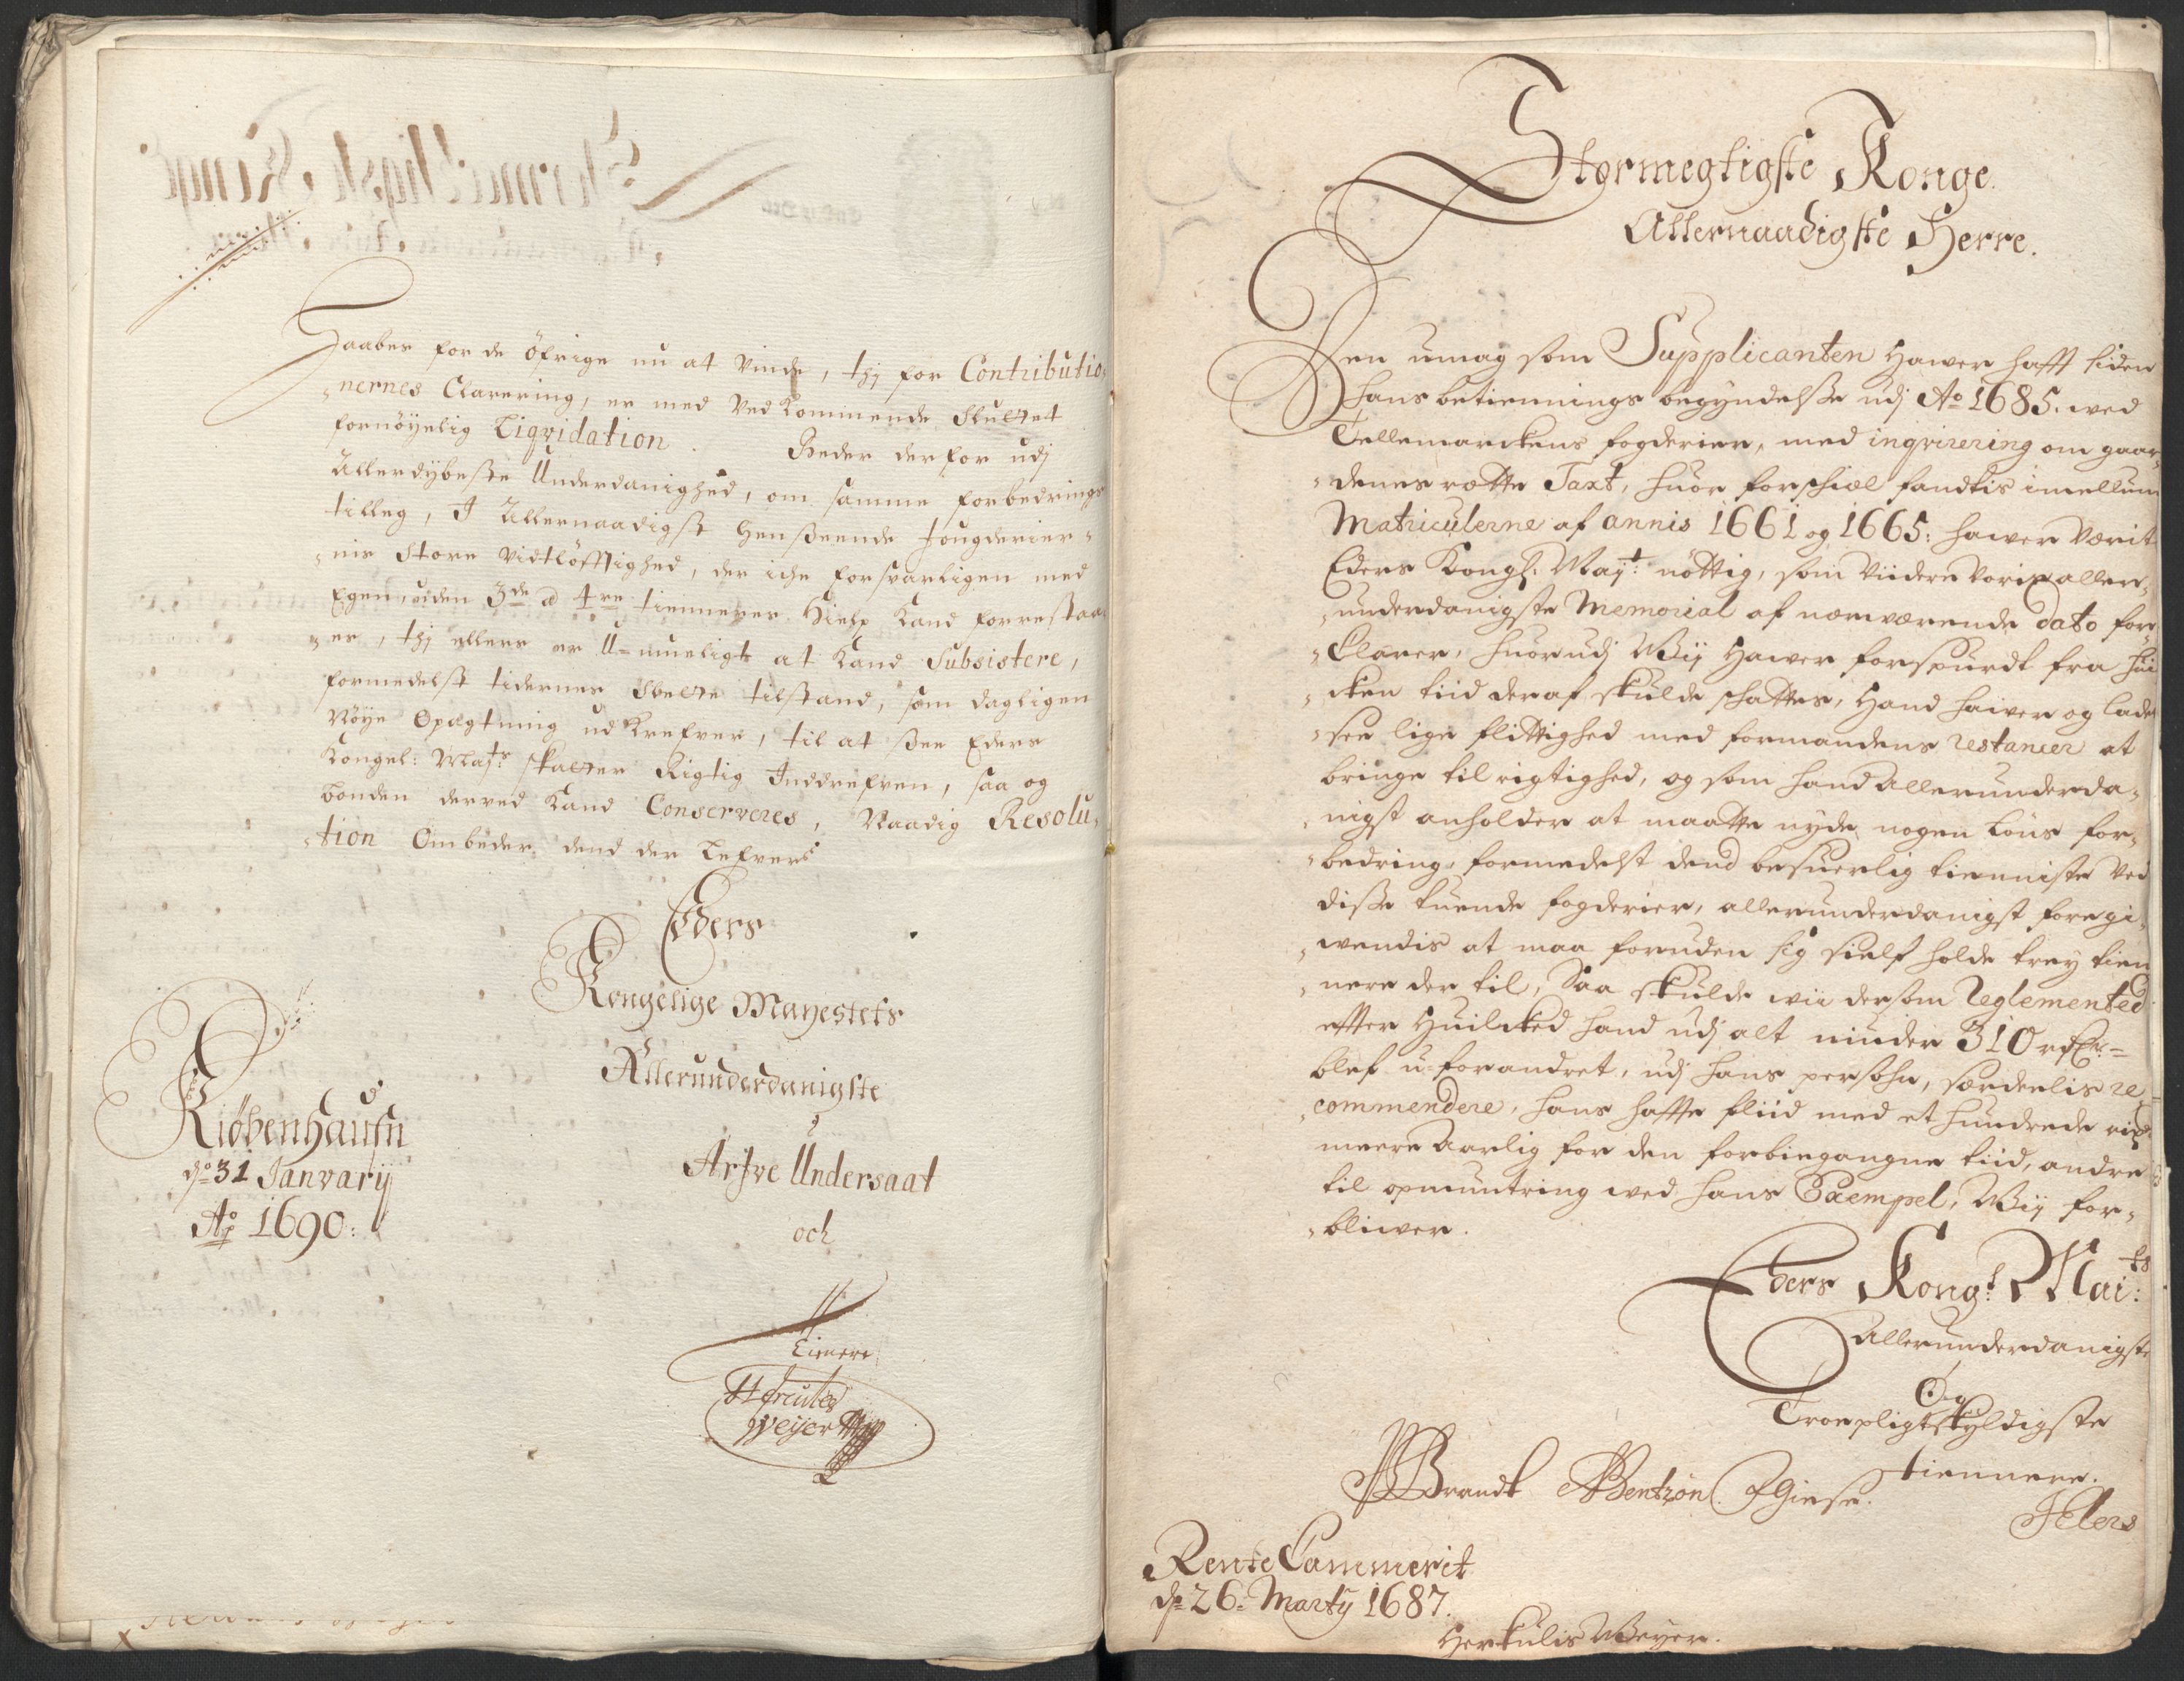 Haabes for de öfrige nu at vinde, thj for Contributio-
nernes Clarering, er med Ved Kommende Skultet
fornöyelig Liqvidation. Beder derfor udj
Allerdybeste Underdanighed, om samme forbedrings
tilleg, I Allernaadigst Henseende fougderier-
nis Store vidtlöfftighed, der iche forsvarligen med
Egen, uden 3de a 4re tienneres Hielp Kand forrestaa-
es, thj ellers er U-mueligt at Kand Subsistere,
formedelst tidernes tilstand, som dagligen
Nöye Opagtning ud Krefver, til at see Eders
Kongel: Mayts skatter Rigtig Inddrefven, saa og
bonden derved Kand Conserveres, Naadig Resolu-
tion Ombeder, dend der Lefver
Eders
Kongelige Mayestets
Allerunderdanigste
Arfve Undersaat
och
Tienere
Hercules
Weyer
Kiöbenhaufn
d: 31 Janvarij
Ao 1690:
Stormegtigste Konge
Allernaadigste Herre.
Den umag som Supplicanten hawer hafft siden
hans betiennings begyndelsse udj Ao 1685. wed
Tellemarckens fogderier, med inqvirering om gaar-
denes rette Taxt, huor forschiæl fandtis imellum
Matriculerne af annis 1661 og 1665: hawer værit
Eders Kongl: Mayt: nöttig, som viidere voris aller-
underdanigste Memorial af nærværende dato for-
Clarer, huorudj Wij hawer forspurdt fra huil-
cken tiid deraf skulde schattes, hand hawer og lade
see lige flittighed med formandens restancer at
bringe til rigtighed, og som hand allerunderda-
nigst anholder at maatte nyde nogen löns for-
bedring, formedelst dend besuerlig tienniste ved
disse tuende fogderier, allerunderdanigst foregi-
vendis at maa foruden sig sielf holde trey tien-
nere der til, Saa skulde wii dersom Reglemented
effter huilcked hand udj alt niuder 310 rdlr=
blef u-forandret, udj hans persohn, særdeelis re-
commendere, hans haffte fliid med et hundrede rixd
meere aarlig for den forbiegangne tiid, andre
til opmuntring wed hans Exempel, Wij for-
bliwer.
Eders Kongl: Mai:ts
Allerunderdanigste
Og
Troepligtskyldigste
tiennere.
PBrandt Bentzon Giese.
JElers
Rente Cammerit
d: 26. Martij 1687.
Herkulis Weyer.